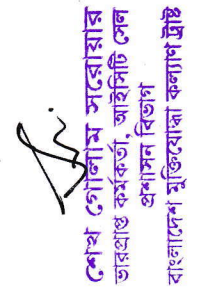 শেখ গোলাম সরোয়ার
ভারপ্রাপ্ত কর্মকর্তা, আইসিটি সেল
প্রশাসন বিভাগ
বাংলাদেশ মুক্তিযোদ্ধা কল্যাণ ট্রাস্ট